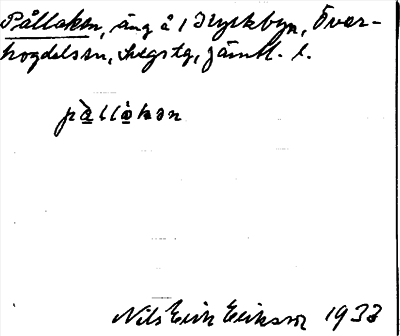 Pållaken, äng å 1 Kyrkbyn, Över-
hogdals sn, Svegs tg, Jämtl. l.
pållakən
Nils Erik Erikson 1933